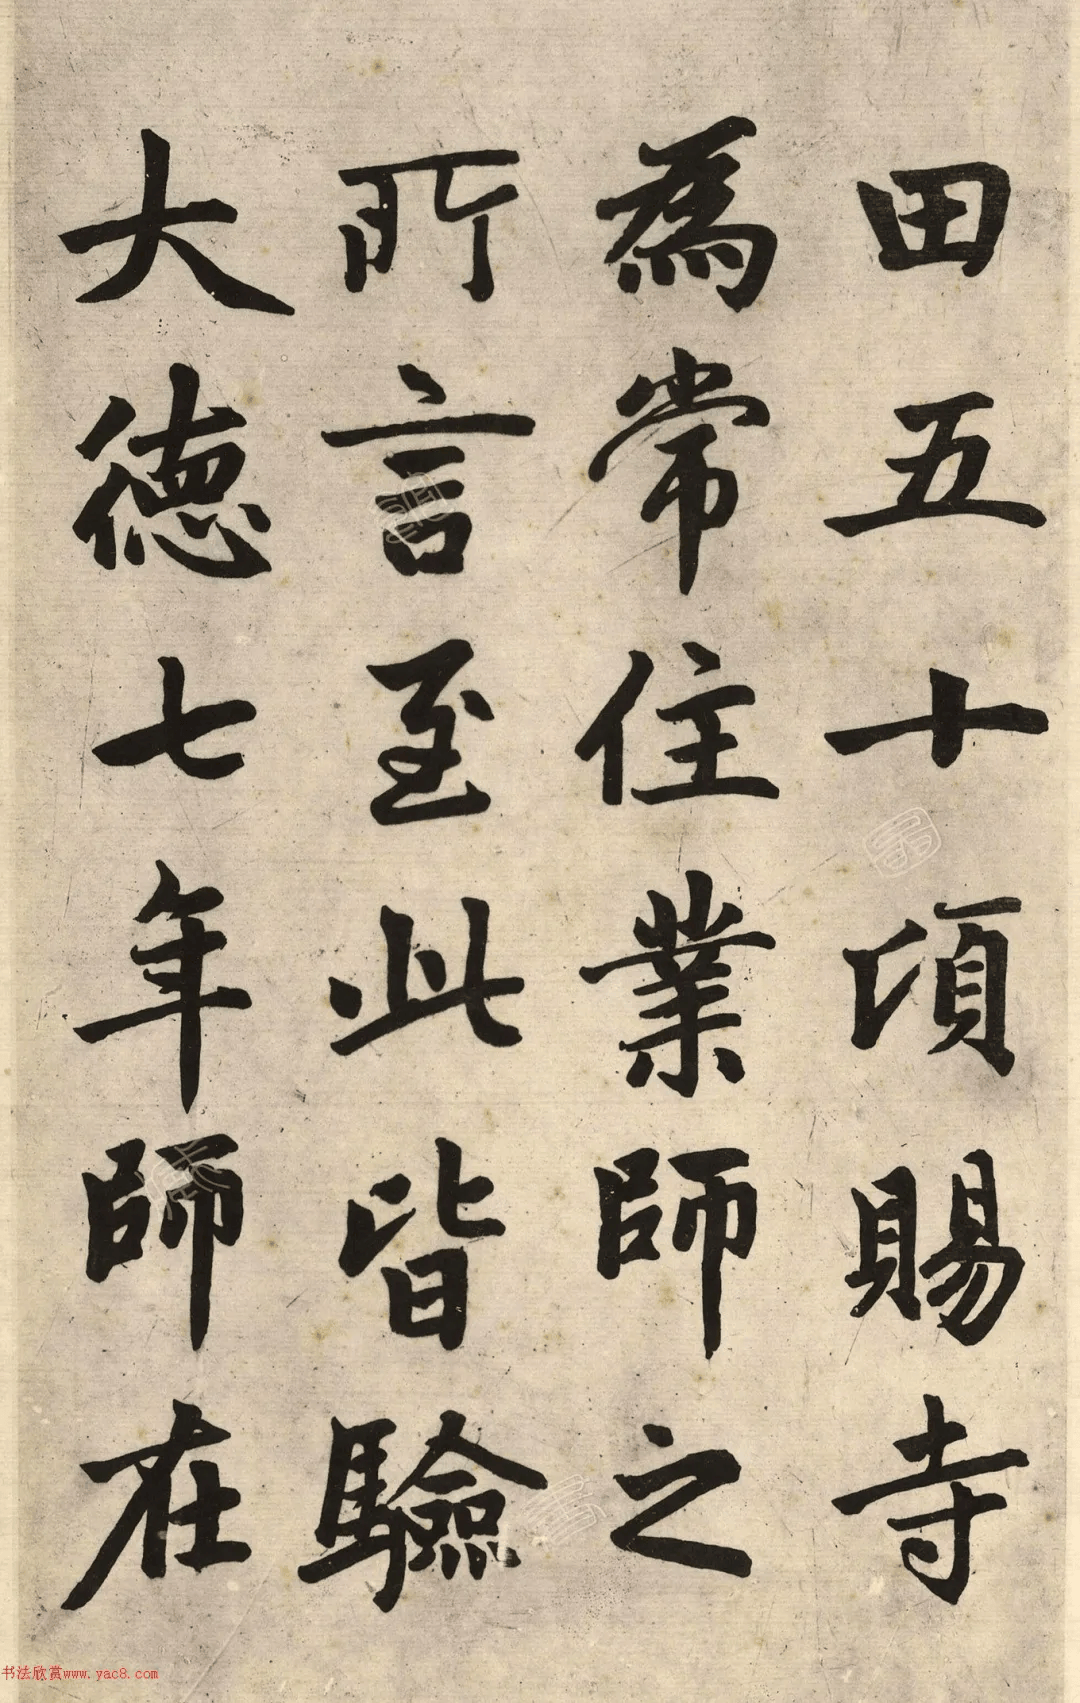 田五十頃賜寺
為常住業師之
所言至此皆驗
大德七年師在
书法欣赏www.yac8.com